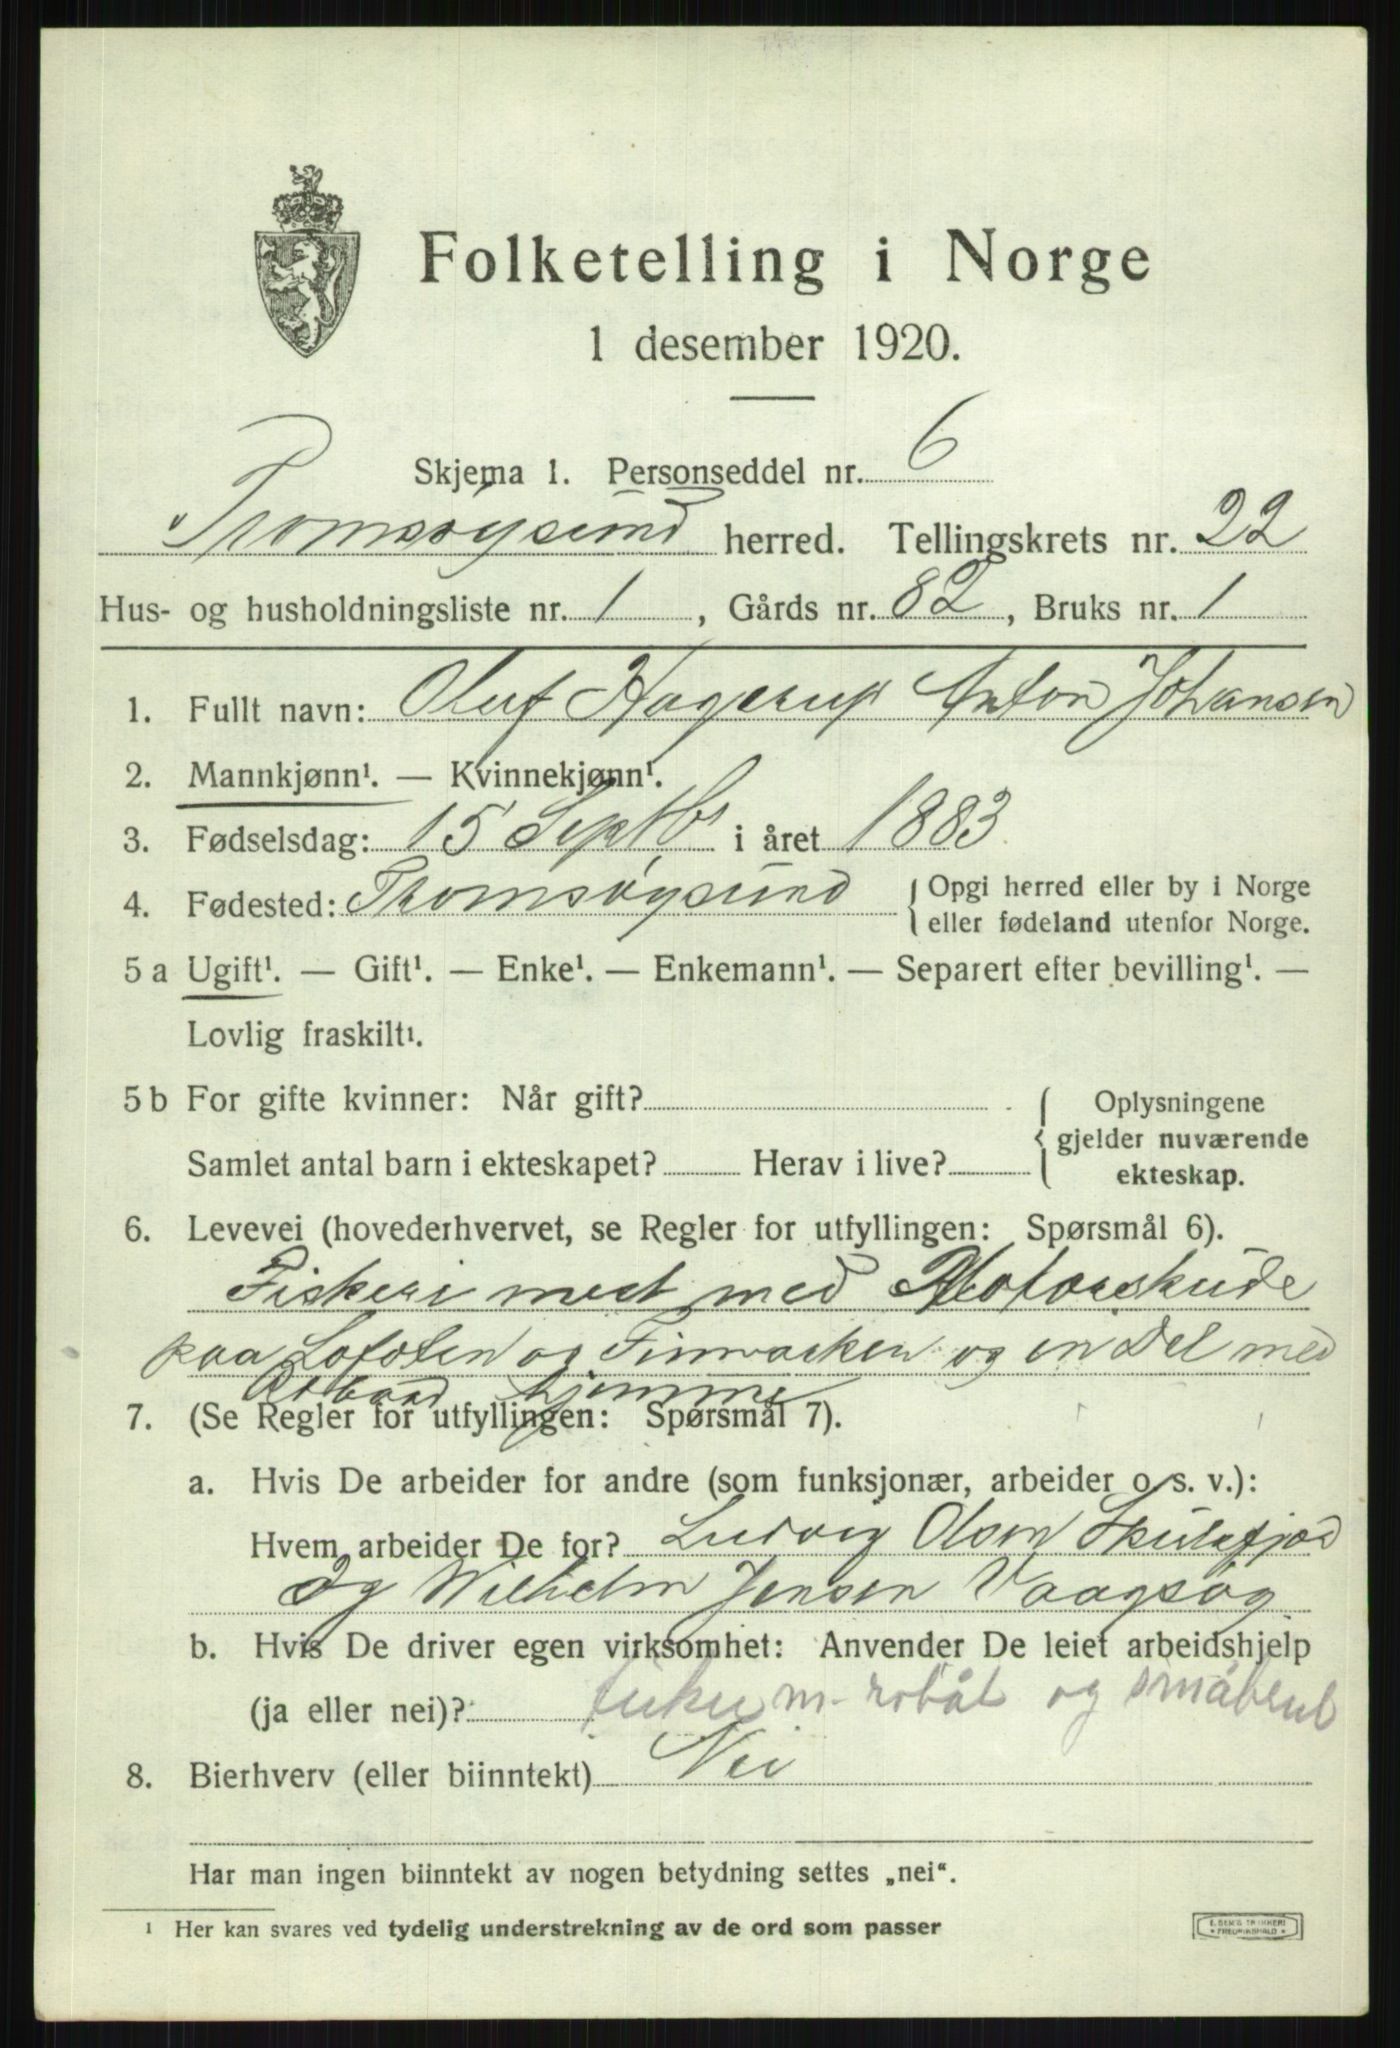 Folketelling i Norge
1 desember 1920.
Skjema 1. Personseddel nr. 6
Tromsøysund herred. Tellingskrets nr. 22
Hus- og husholdningsliste nr. 1, Gårds nr. 82, Bruks nr. 1
1. Fullt navn: Oluf Hagerup Anton Johansen
2. Mannkjønn¹. — Kvinnekjønn¹.
3. Fødselsdag: 15 Septbr i året 1883
4. Fødested: Tromsøysund { Opgi herred eller by i Norge
eller fødeland utenfor Norge.
5 a Ugift¹. — Gift¹. — Enke¹. — Enkemann¹. — Separert efter bevilling¹. —
Lovlig fraskilt¹.
5 b For gifte kvinner: Når gift? { Oplysningene
gjelder nuværende
Samlet antal barn i ekteskapet? Herav i live?
ekteskap.
6. Levevei (hovederhvervet, se Regler for utfyllingen: Spørsmål 6).
Fiskeri mest med Motorskude
paa Lofoten og Finmarken og en Del med
Robaad hjemme
7. (Se Regler for utfyllingen: Spørsmål 7).
a. Hvis De arbeider for andre (som funksjonær, arbeider o. s. v.):
Hvem arbeider De for? Ludvig Olsen Skulsfjord
og Wilhelm Jensen Vaagsøg
b. Hvis De driver egen virksomhet: Anvender De leiet arbeidshjelp
(ja eller nei)? m. robåt og småbruk
8. Bierhverv (eller biinntekt) Nei
Har man ingen biinntekt av nogen betydning settes „nei“.
¹ Her kan svares ved tydelig understrekning av de ord som passer
FREDRIKSHALD